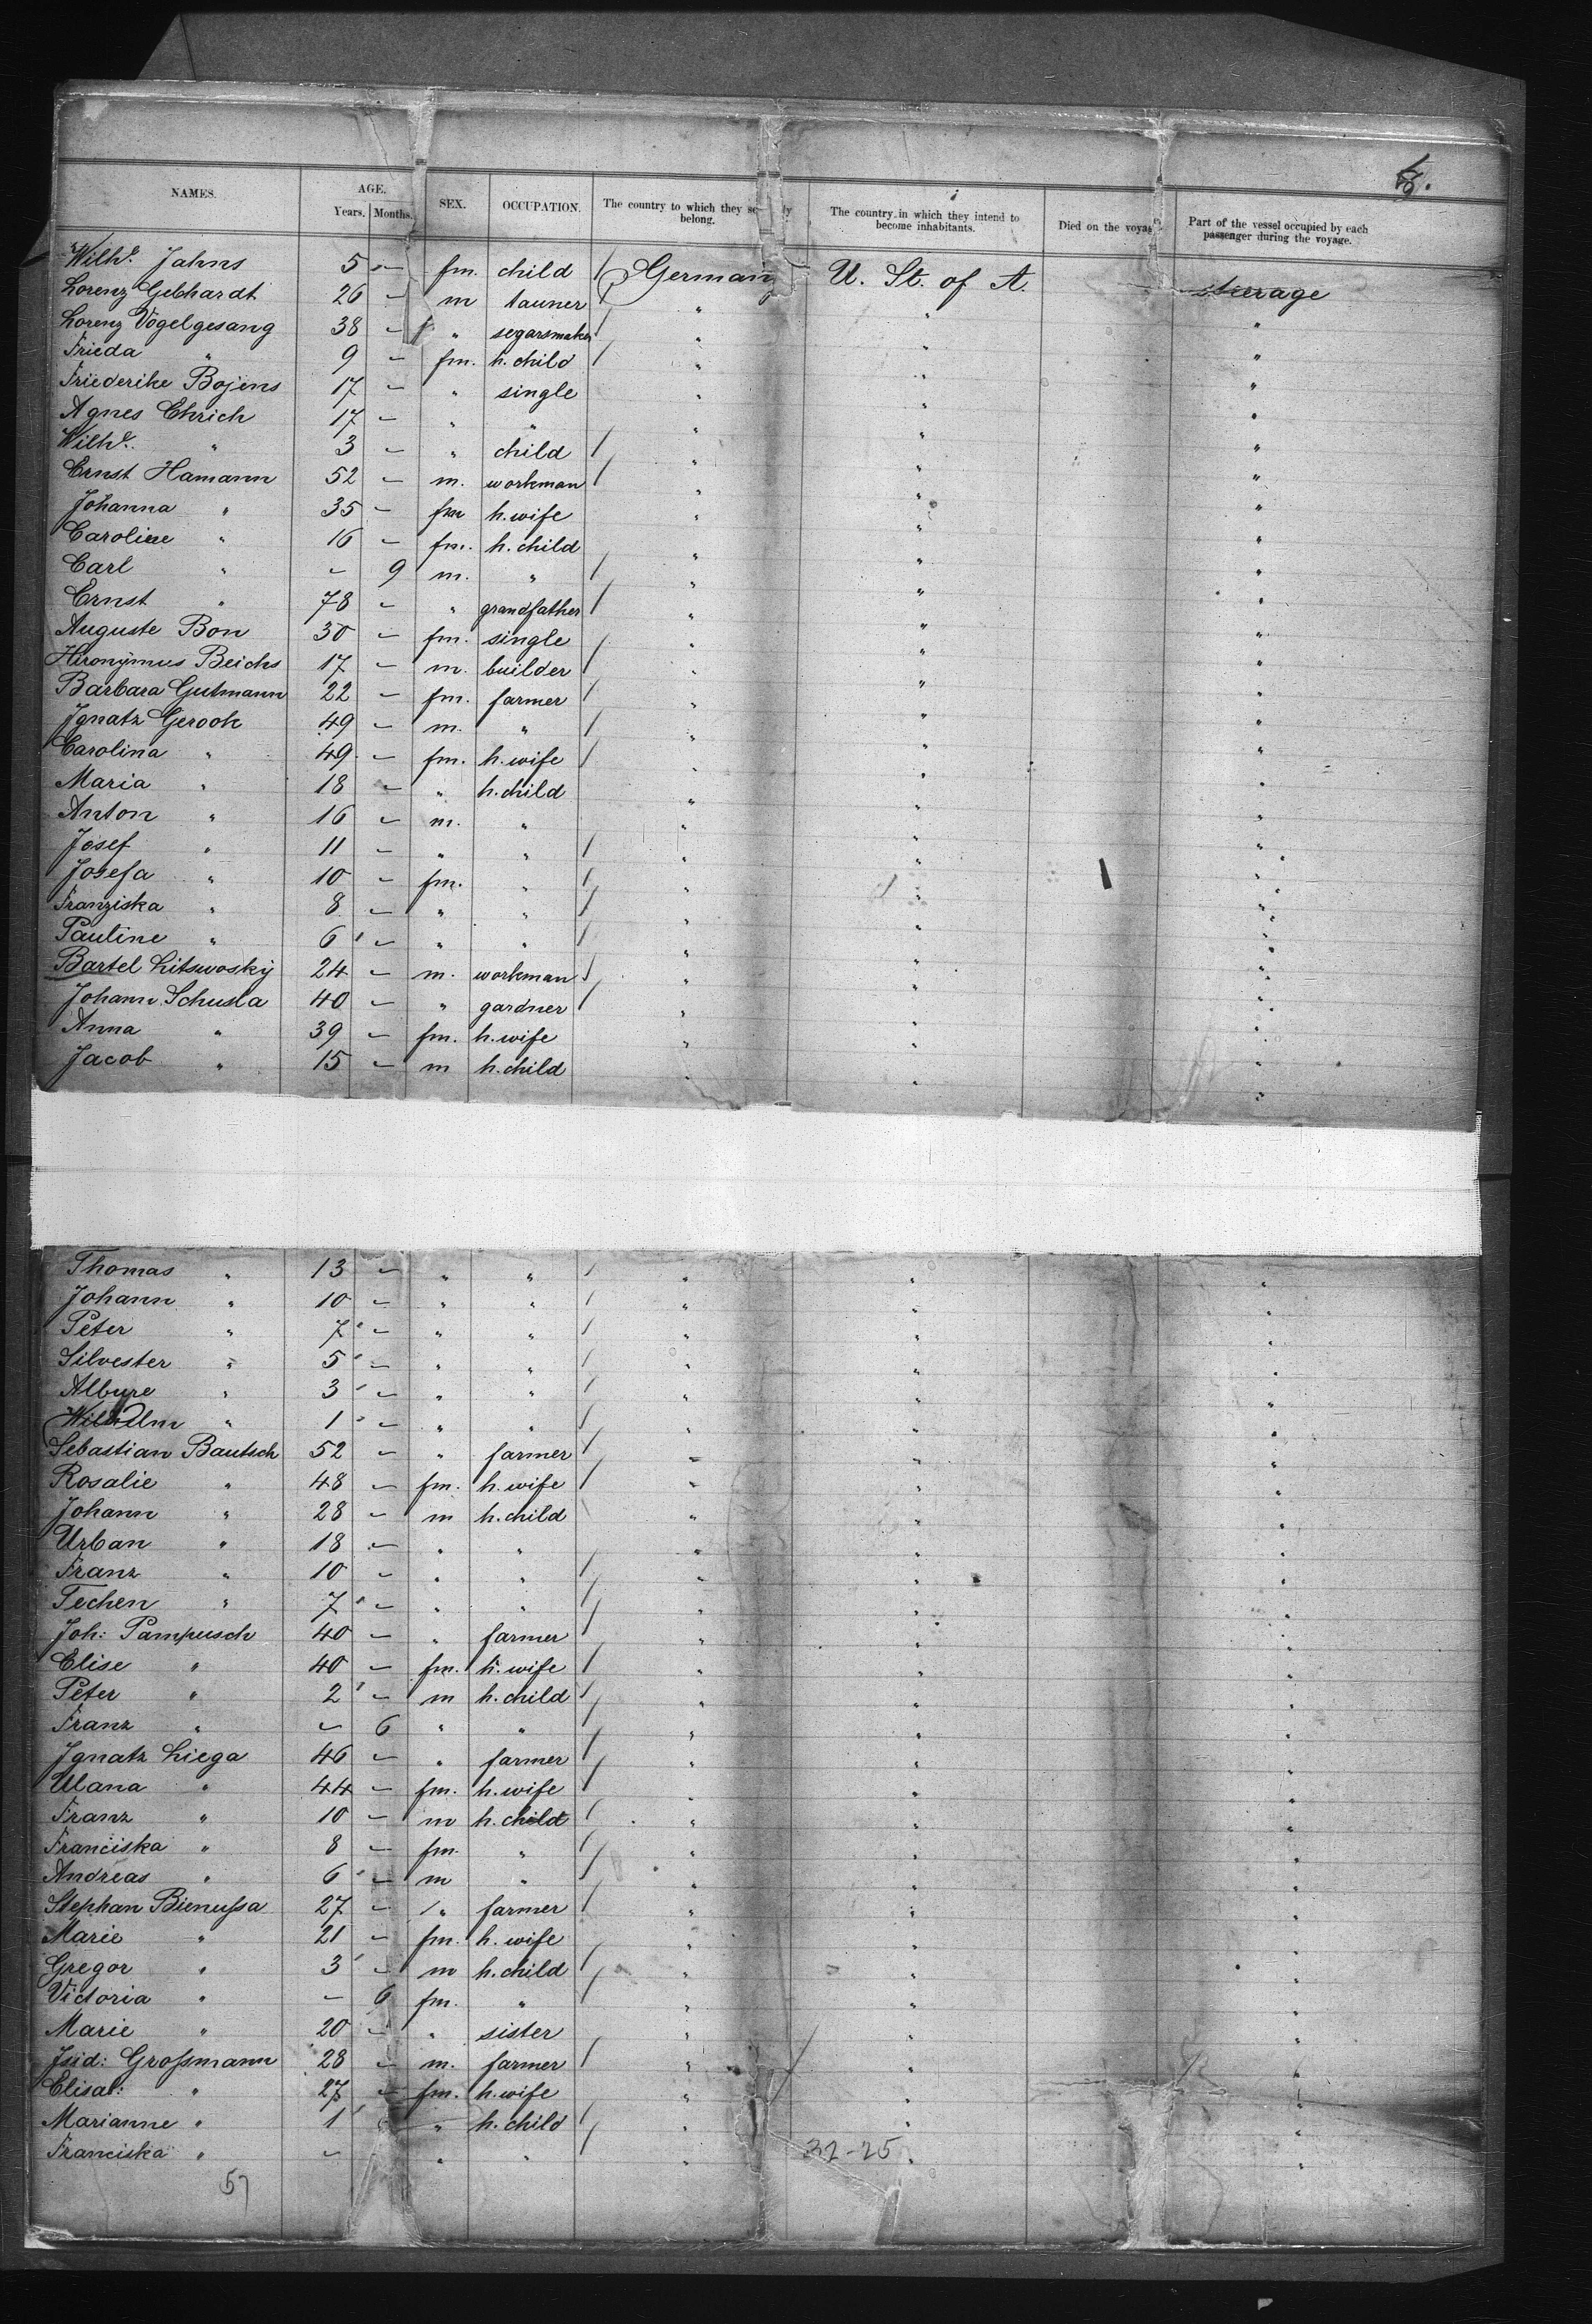 6.
NAMES. AGE. Years. Months. SEX. OCCUPATION. The country to which they belong. The country in which they intend to become inhabitants. Died on the voyage Part of the vessel occupied by each passenger during the voyage.
Wilh. Jahns 5 - fm. child German U. St. of A. steerage
Lorenz Gebhardt 26 - m tauner " " "
Lorenz Vogelgesang 38 - " segarsmaker " " "
Frieda " 9 - fm. h. child " " "
Friederike Bojens 17 - " single " " "
Agnes Ehrich 17 - " " " " "
Wilh. " 3 - " child " " "
Ernst Hamann 52 - m. workman " " "
Johanna " 35 - fm h. wife " " "
Caroline " 16 - fm. h. child " " "
Carl " - 9 m. " " " "
Ernst " 78 - " grandfather " " "
Auguste Bon 30 - fm. single " " "
Hironymus Beichs 17 - m. builder " " "
Barbara Gutmann 22 - fm. farmer " " "
Ignatz Gerook 49 - m. " " " "
Carolina " 49 - fm. h. wife " " "
Maria " 18 - " h. child " " "
Anton " 16 - m. " " " "
Josef " 11 - " " " " "
Josefa " 10 - fm. " " " "
Franziska " 8 - " " " " "
Pauline " 6 - " " " " "
Bartel Litswosky 24 - m. workman " " "
Johann Schusta 40 - " gardner " " "
Anna " 39 - fm. h. wife " " "
Jacob " 15 - m h. child " " "
Thomas " 13 - " " " " "
Johann " 10 - " " " " "
Peter " 7 - " " " " "
Silvester " 5 - " " " " "
Albure " 3 - " " " " "
Wilhelm " 1 - " " " " "
Sebastian Bautsch 52 - " farmer " " "
Rosalie " 48 - fm. h. wife " " "
Johann " 28 - m h. child " " "
Urban " 18 - " " " " "
Franz " 10 - " " " " "
Techen " 7 - " " " " "
Joh: Pampusch 40 - " farmer " " "
Elise " 40 - fm. h. wife " " "
Peter " 2 - m h. child " " "
Franz " - 6 " " " " "
Ignatz Liega 46 - " farmer " " "
Ulana " 44 - fm. h. wife " " "
Franz " 10 - m h. child " " "
Franciska " 8 - fm. " " " "
Andreas " 6 - m " " " "
Stephan Bienussa 27 - " farmer " " "
Marie " 21 - fm. h. wife " " "
Gregor " 3 - m h. child " " "
Victoria " - 6 fm. " " " "
Marie " 20 - " sister " " "
Isid: Grossmann 28 - m. farmer " " "
Elisab: " 27 - fm. h. wife " " "
Marianne " 1 " h. child " " "
Franciska " - " " " " "
57 32-25